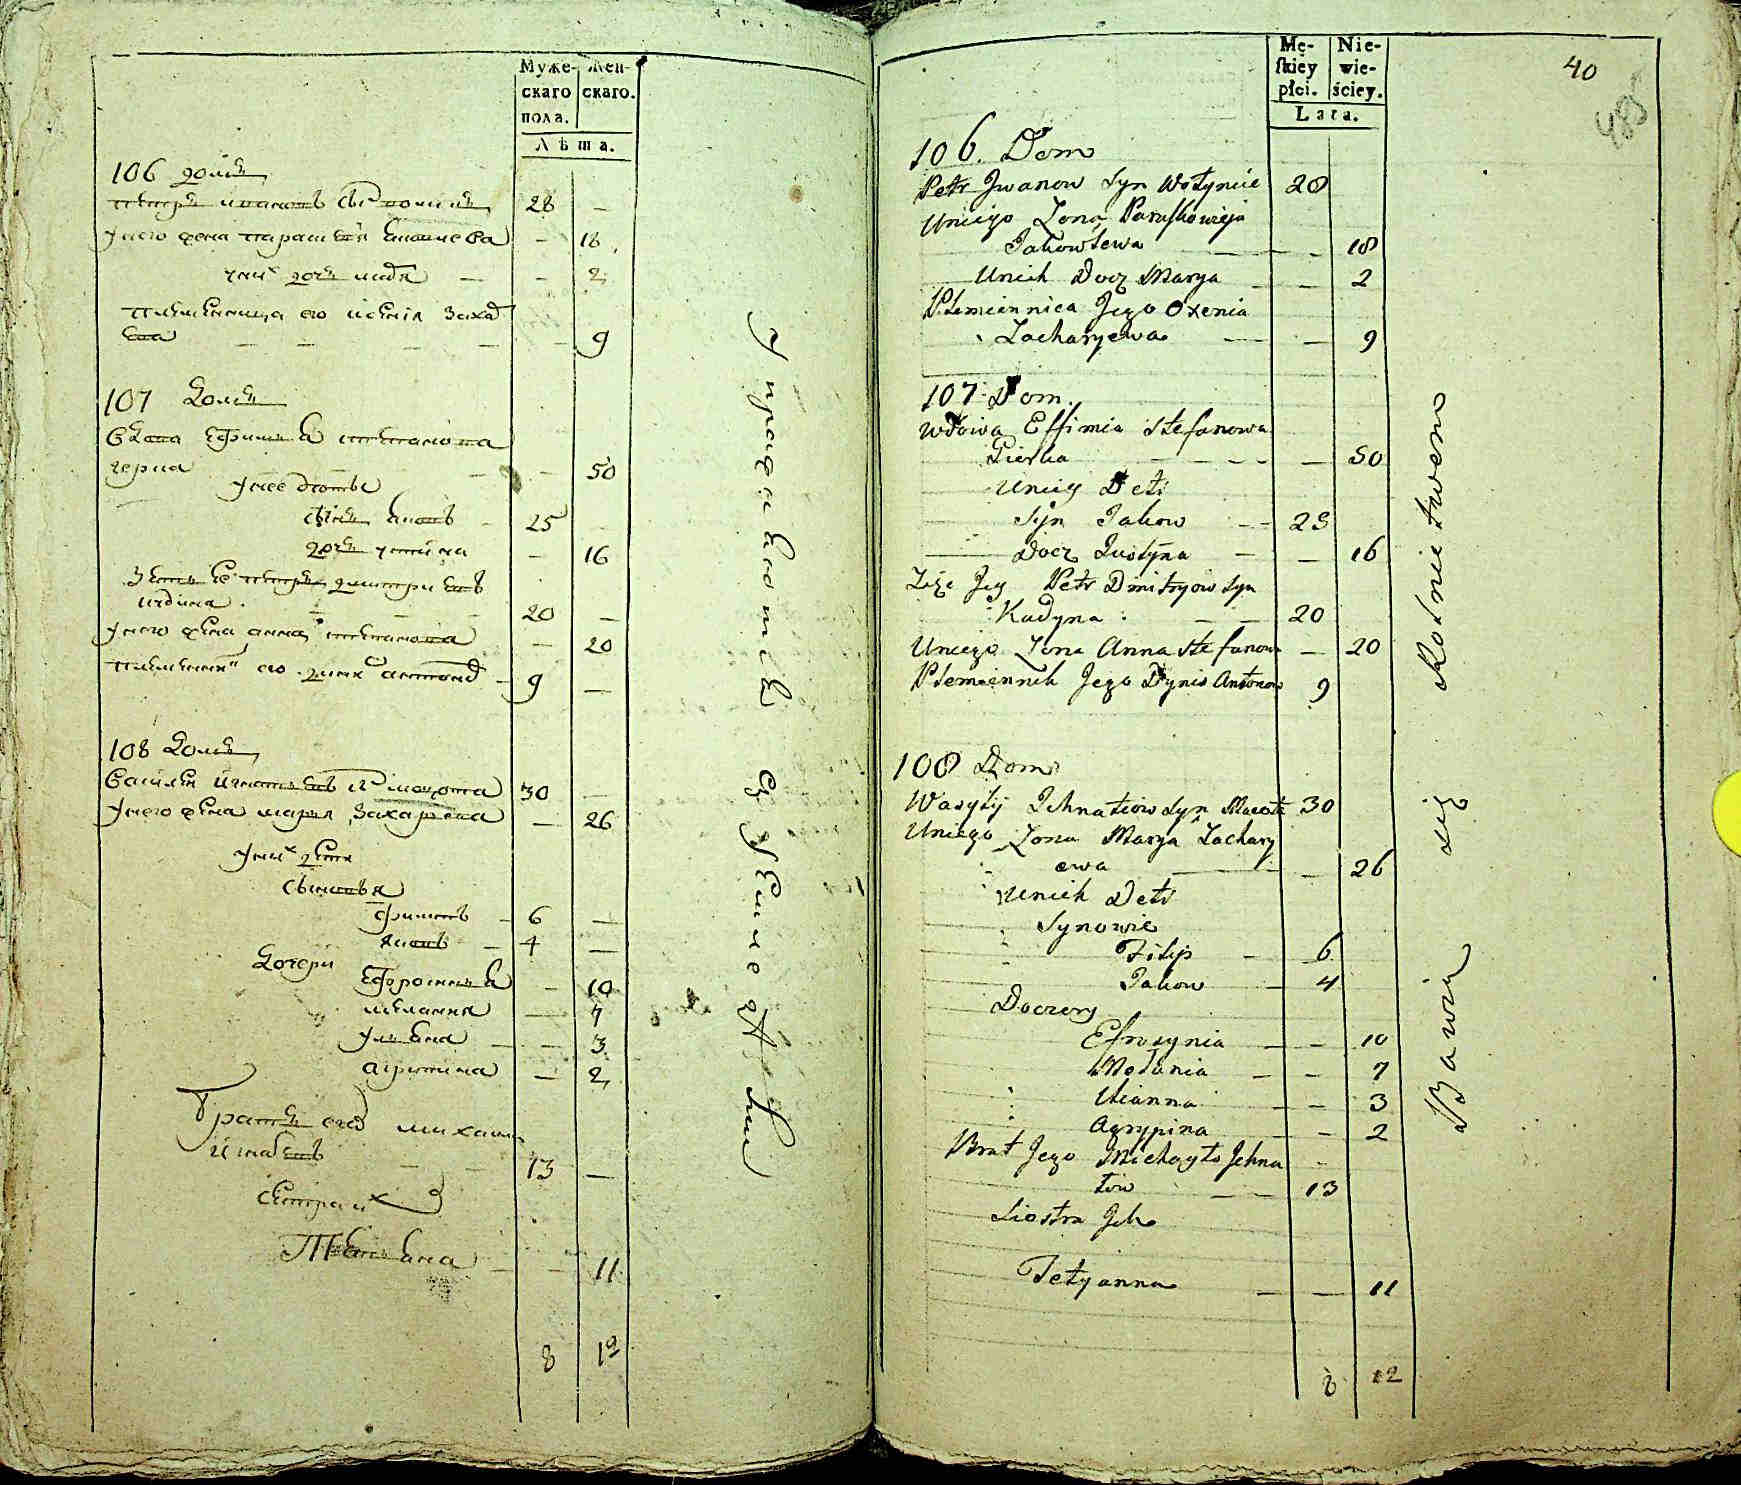 Муже-
скаго
пола.
Жен-
скаго.
Лѣта.
106 домъ
петръ ивановъ сынъ 28 —
у него жена парасковія яковлева — 18
у них дочь марья — — 2
племенница его ксенія захар
ева — — — — — 9
107 домъ
вдова ефимья степанова
— — 50
у нее дѣти
сынъ яковъ — 25
дочь устина — 16
зять ее петръ дмитриевъ
кадина. 20 —
у него жена анна степанова — 20
племенник его дынис антонов — 9 —
108 домъ
василей игнатьевъ сынъ макота 30 —
у него жена марья захарева — 26
у них дети
сыновья
филипъ — 6 —
яковъ — 4 —
дочери
ефросинья — 10
мелания — 7
ульяна — — 3
агрипина — 2
братъ его михаило
игнатевъ — — 13 —
сестра их
Татьяна — — 11
8 12
Упражняются
в хлебопашестве
Mę-
skiey
płci.
Nie-
wie-
ściey.
Lata.
40
485
106. Dom
Petr Jwanow Syn Wołyniec 28
Uniego Zona Paraskowieja
Jakowlewa — — 18
Unich Docz Marya — — 2
Plemiennica Jego Oxenia
Zacharyewa — — 9
107 Dom.
Wdowa Effimia Stefanowa
— — — — 50
Uniey Deti
Syn Jakow — — 25
Docz Justyna — — 16
Zięć Jey Petr Dmitryow Syn
Kadyna: — — 20
Uniego Zona Anna Stefanow — 20
Plemiennik Jego Dynis Antonow 9
108 Dom
Wasylij Jhnatiow Syn Macota 30
Uniego Zona Marya Zachary
ewa — — 26
Unich Deti
Synowie
Filip — 6
Jakow — 4
Doczery
Efrosynia — — 10
Mołania — — 7
Ulianna — — 3
Agrypina — — 2
Brat Jego Michayło Jhna
tow — — 13
Siostra Jch
Tetyanna — — 11
8 12
Bawią się Rolnictwem